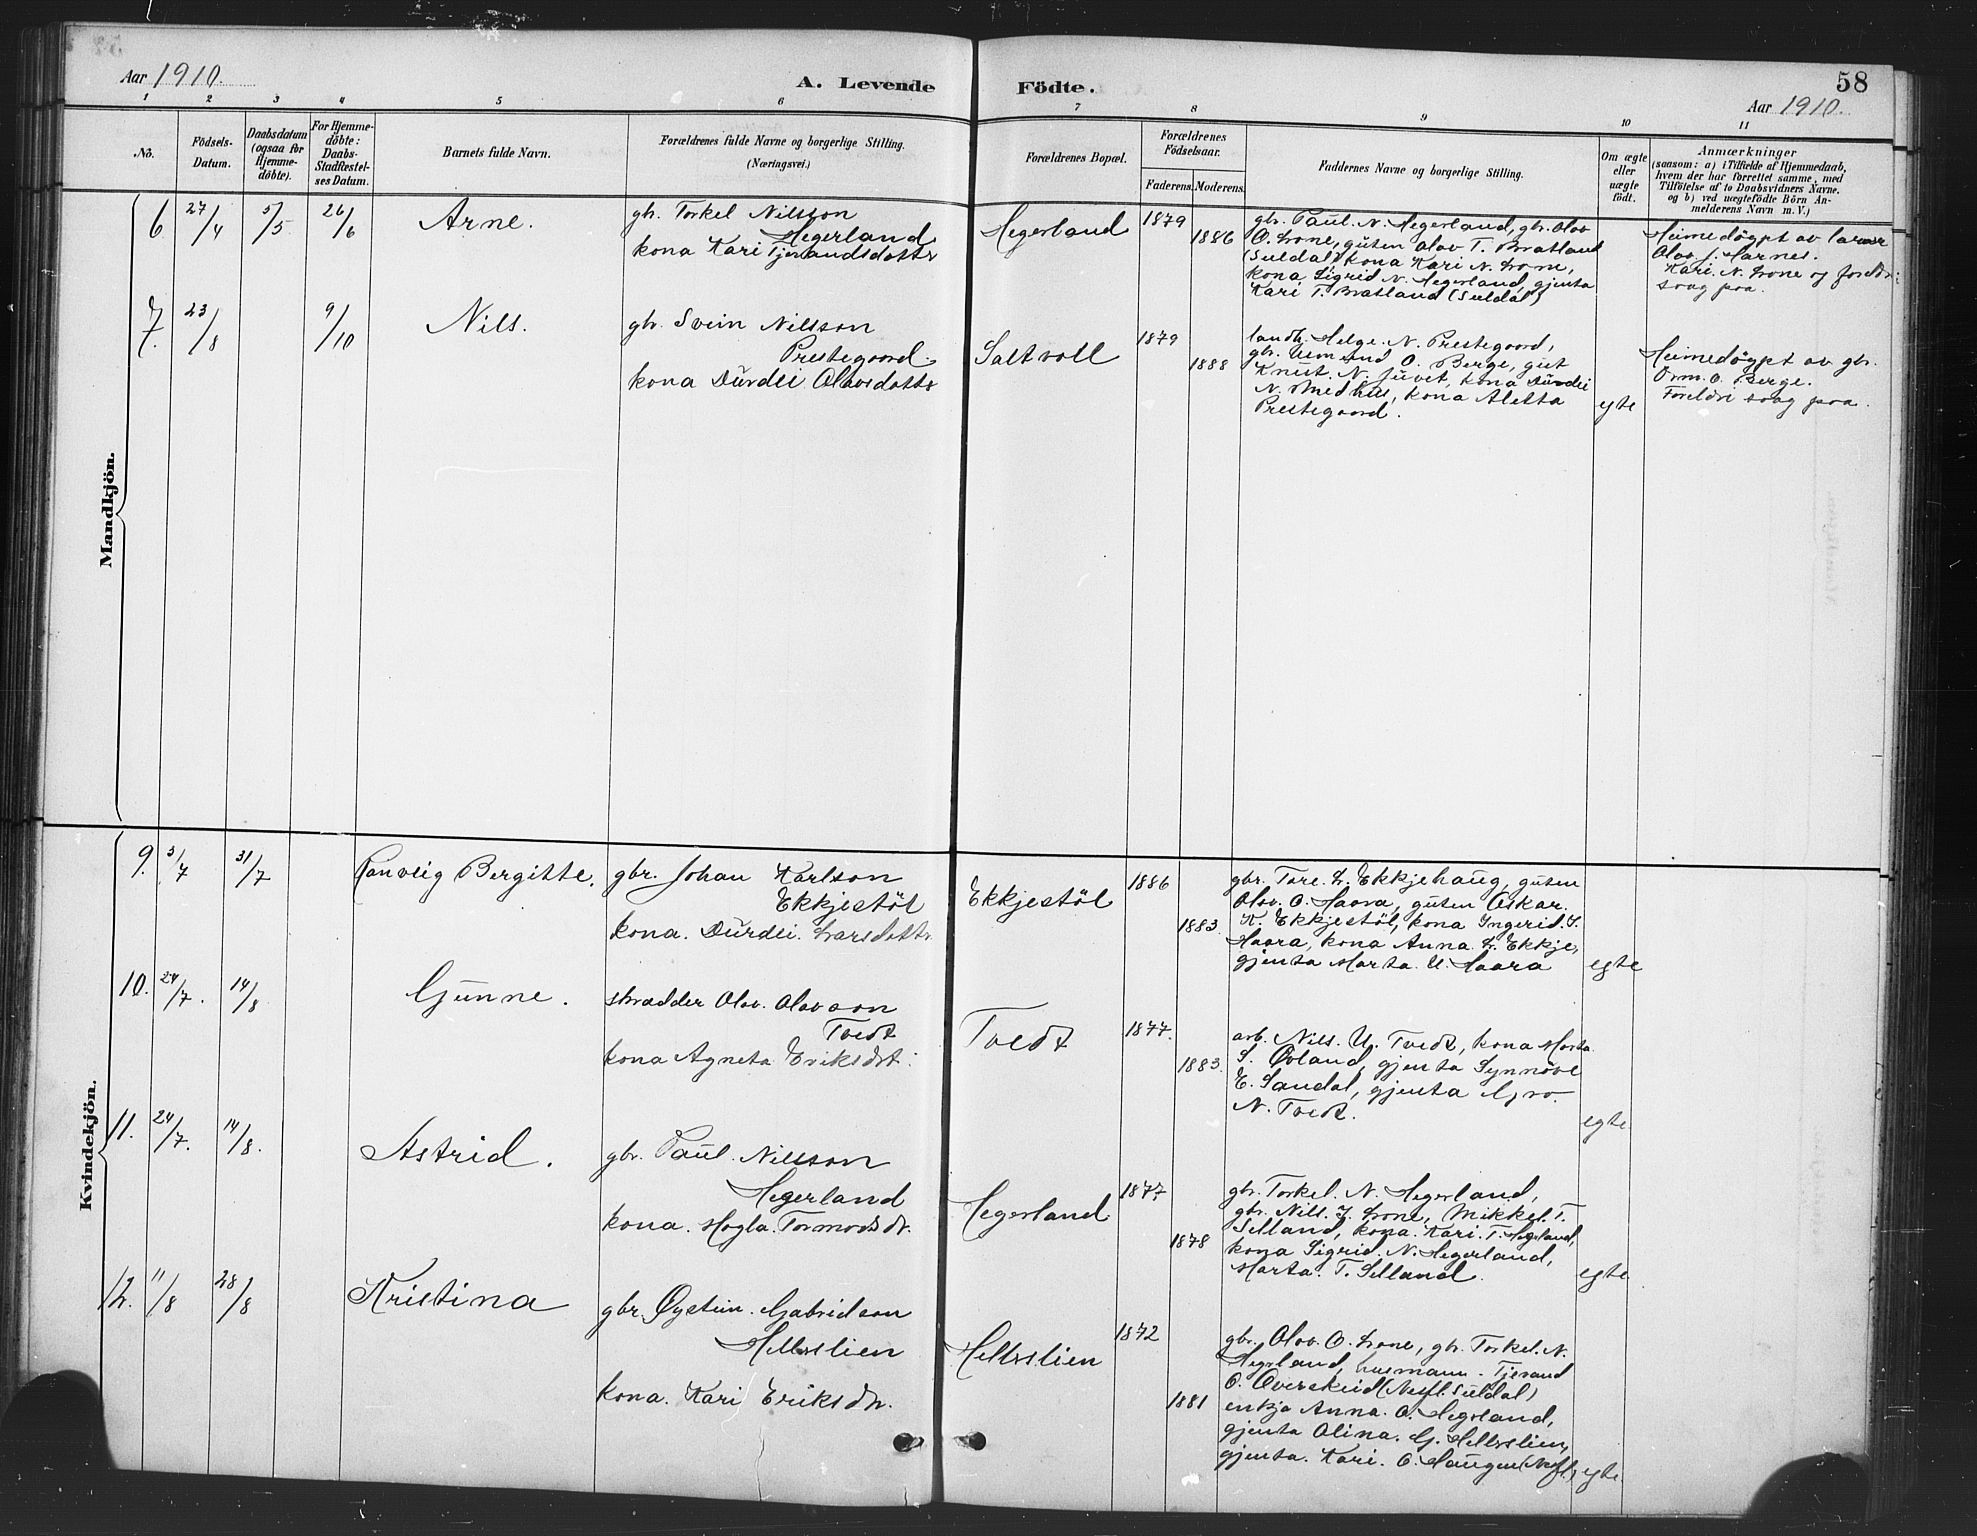 Aar 1910.
A. Levende
Födte.
58
Aar 1910.
1 2 3 4 5 6 7 8 9 10 11
No.
Födsels-
Datum.
Daabsdatum
(ogsaa for
Hjemme-
döbte).
For Hjemme-
döbte:
Daabs-
Stadfæstel-
ses Datum.
Barnets fulde Navn.
Forældrenes fulde Navne og borgerlige Stilling.
(Næringsvei.)
Forældrenes Bopæl.
Forældrenes
Födselsaar.
Faderens.
Moderens.
Faddernes Navne og borgerlige Stilling.
Om ægte
eller
uægte
födt.
Anmærkninger
(saasom: a) i Tilfælde af Hjemmedaab,
hvem der har forrettet samme, med
Tilföielse af to Daabsvidners Navne.
og b) ved uægtefödte Börn An-
melderens Navn m. V.)
Mandkjön.
6. 27/4 5/5 26/6 Arne.
gbr. Torkel Nilsson
Hegerland
kona Kari Tjerandsdottr
Hegerland
1879
1886
gbr. Paul. N. Hegerland, gbr. Olav
O. Lone, guten Olav T. Bratland
(Suldal) kona Kari N. Lone,
kona Sigrid N. Hegerland, gjenta
Kari T. Bratland (Suldal)
Heimedöypt av lærar
Olav J. Harnes.
Kari. N. Lone og foreldri
saag paa.
7. 23/8 9/10 Nils.
gbr. Svein Nilsson
Prestegaard.
kona Durdei Olavsdottr
Saltvoll
1879
1888
landh. Helge. N. Prestegaard,
gbr. O. Berge, gut
Knut N. Juvet, kona Durdei
N. Midhus, kona Aletta
Prestegaard.
egte
Heimedöypt av gbr.
Orm. O. Berge.
Foreldri saag paa.
Kvindekjön.
9. 3/7 31/7 Ranveig Bergitte.
gbr. Johan Karlson
Ekkjestöl
kona. Durdei. Larsdottr.
Ekkjestöl
1886
1883.
gbr. Tore. L. Ekkjehaug, guten
Olav. O. Haara, guten Oskar.
K. Ekkjestöl, kona Ingerid. S.
Haara, kona Anna L. Ekkje,
gjenta Marta U. Haara
egte
10. 24/7. 14/8 Gunne.
skrædder Olav. Olavson
Tvedt
kona Agneta Eriksdt.
Tvedt
1877.
1883.
arb. Nils. U. Tvedt, kona Marta
S. Övland, gjenta Synnöve
E. Sandal, gjenta Gro.
N. Tvedt.
egte
11. 24/7. 14/8. Astrid.
gbr. Paul. Nilsson
Hegerland
kona. Magla. Tormodsdr.
Hegerland
1877
1878
gbr. Torkel. N. Hegerland,
gbr. Nils. J. Lone, Mikkel. T.
Selland, kona. Kari. T. Hegerland,
kona Sigrid. N. Hegerland,
Marta. T. Selland.
egte
12. 11/8 28/8 Kristina
gbr. Öystein. Gabrielson
Hellerslien
kona. Kari Eriksdr.
Hellerslien
1872
1881
gbr. Olav. O. Lone, gbr. Torkel. N.
Hegerland, husmann. Tjerand
O. Överskeid (Nesfl. Suldal)
enkja Anna. O. Hegerland,
gjenta Olina. G. Hellerslien,
gjenta. Kari. O. Haugen (Nesfl.)
egte.